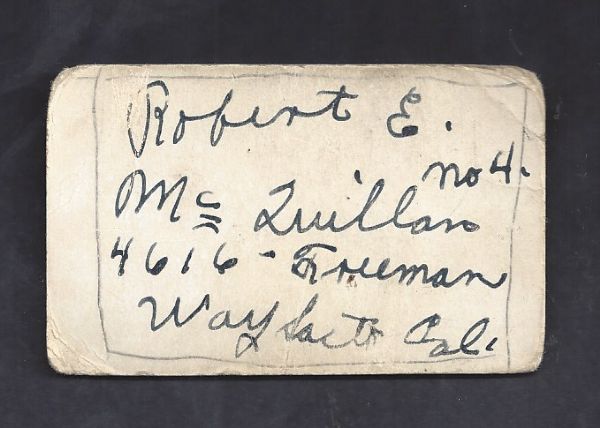 Robert E.
no 4.
Mc Quillan
4616 - Freeman
Way Sact. Cal.